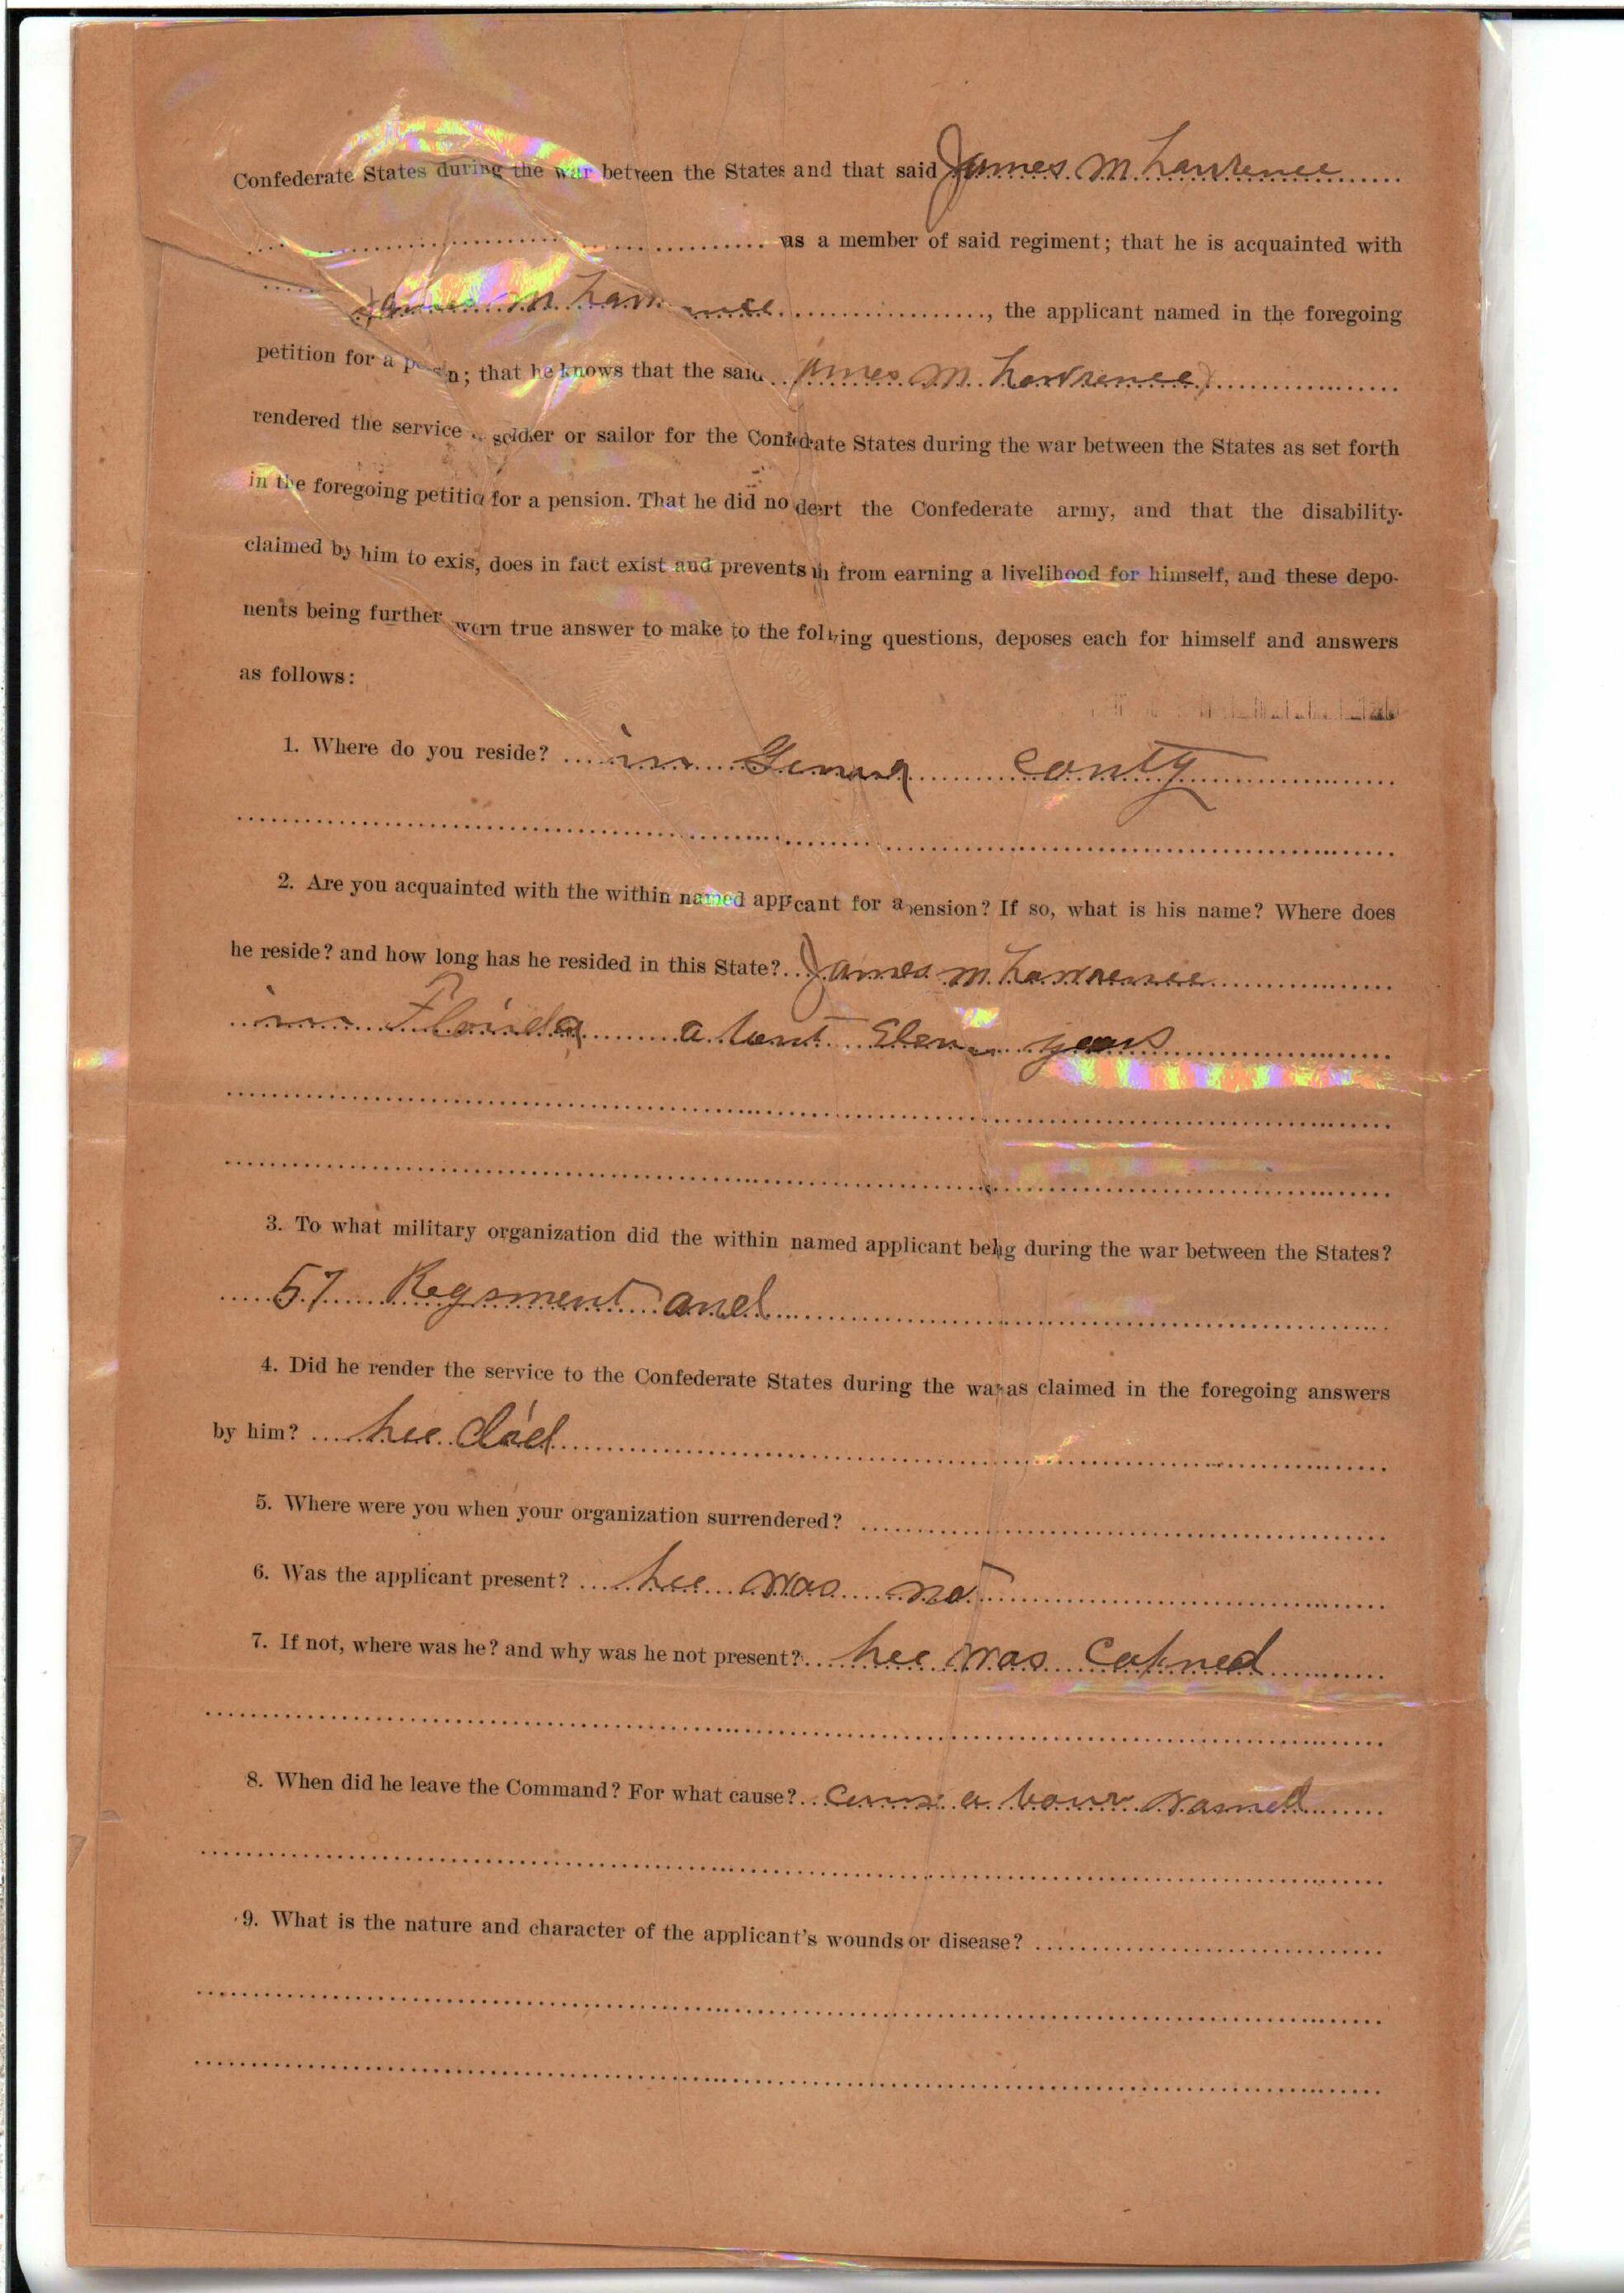 Confederate States during the war between the States and that said James M Lawrence
as a member of said regiment; that he is acquainted with
James M Lawrence, the applicant named in the foregoing
petition for a p n; that he knows that the said James M Lawrence
rendered the service soldier or sailor for the Confederate States during the war between the States as set forth
in the foregoing petitio for a pension. That he did no desert the Confederate army, and that the disability
claimed by him to exis, does in fact exist and prevents from earning a livelihood for himself, and these depo-
nents being further worn true answer to make to the following questions, deposes each for himself and answers
as follows:
1. Where do you reside? in Geneva conty
2. Are you acquainted with the within named applicant for a pension? If so, what is his name? Where does
he reside? and how long has he resided in this State? James M Lawrence
in Florida a bout years
3. To what military organization did the within named applicant belong during the war between the States?
57 Regsment
4. Did he render the service to the Confederate States during the war as claimed in the foregoing answers
by him? hee did
5. Where were you when your organization surrendered?
6. Was the applicant present? hee was not
7. If not, where was he? and why was he not present? hee was
8. When did he leave the Command? For what cause?
9. What is the nature and character of the applicant's wounds or disease?